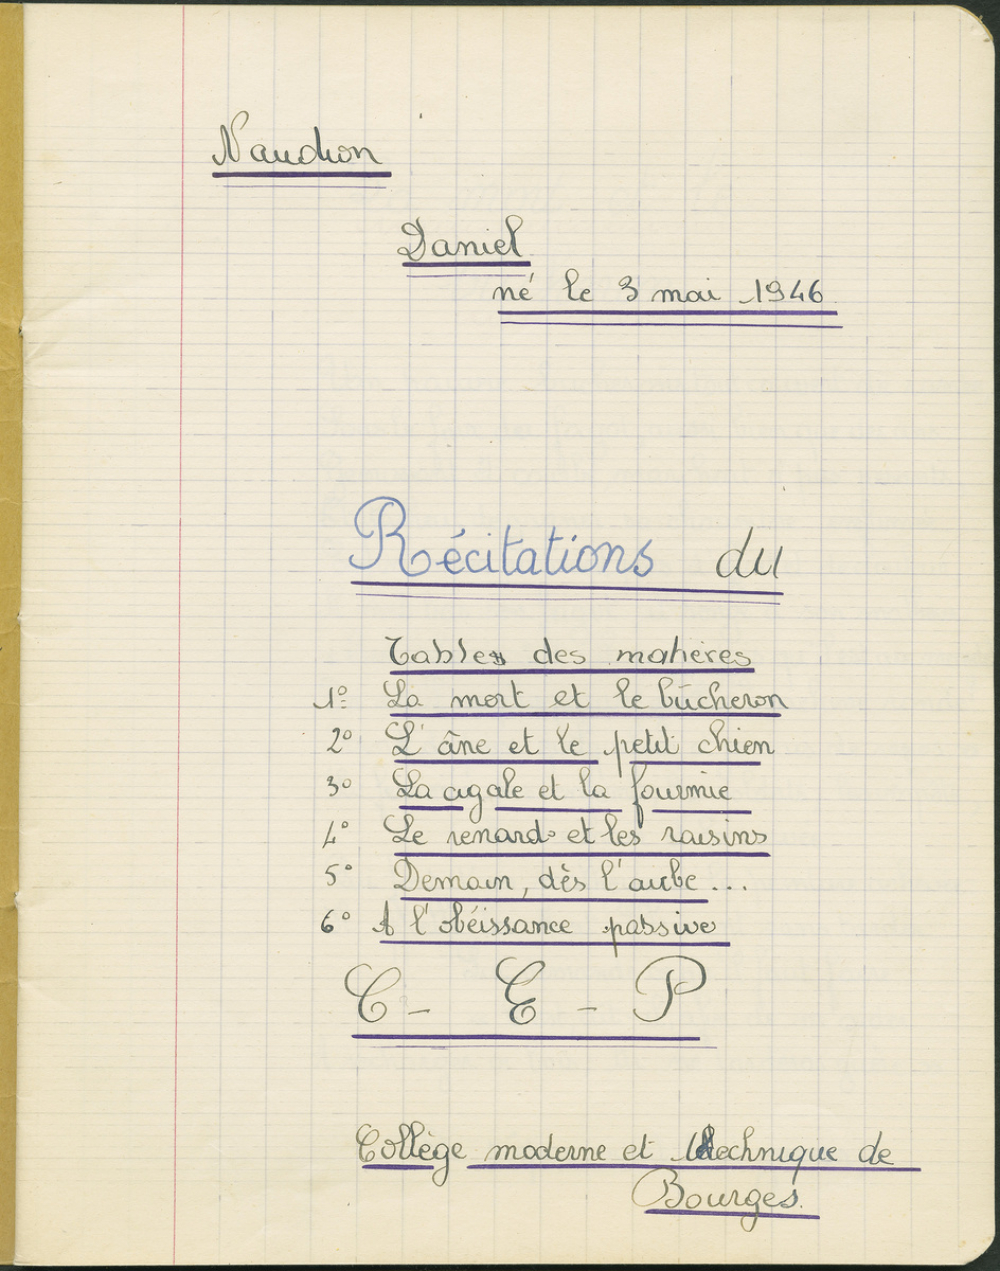 Naudion
Daniel
né le 3 mai 1946
Récitations du
Tables des matières
1° La mort et le bûcheron
2° L'âne et le petit chien
3° La cigale et la fourmie
4° Le renard et les raisins
5° Demain, dès l'aube...
6° A l'obéissance passive
C - E - P
Collège moderne et technique de
Bourges.